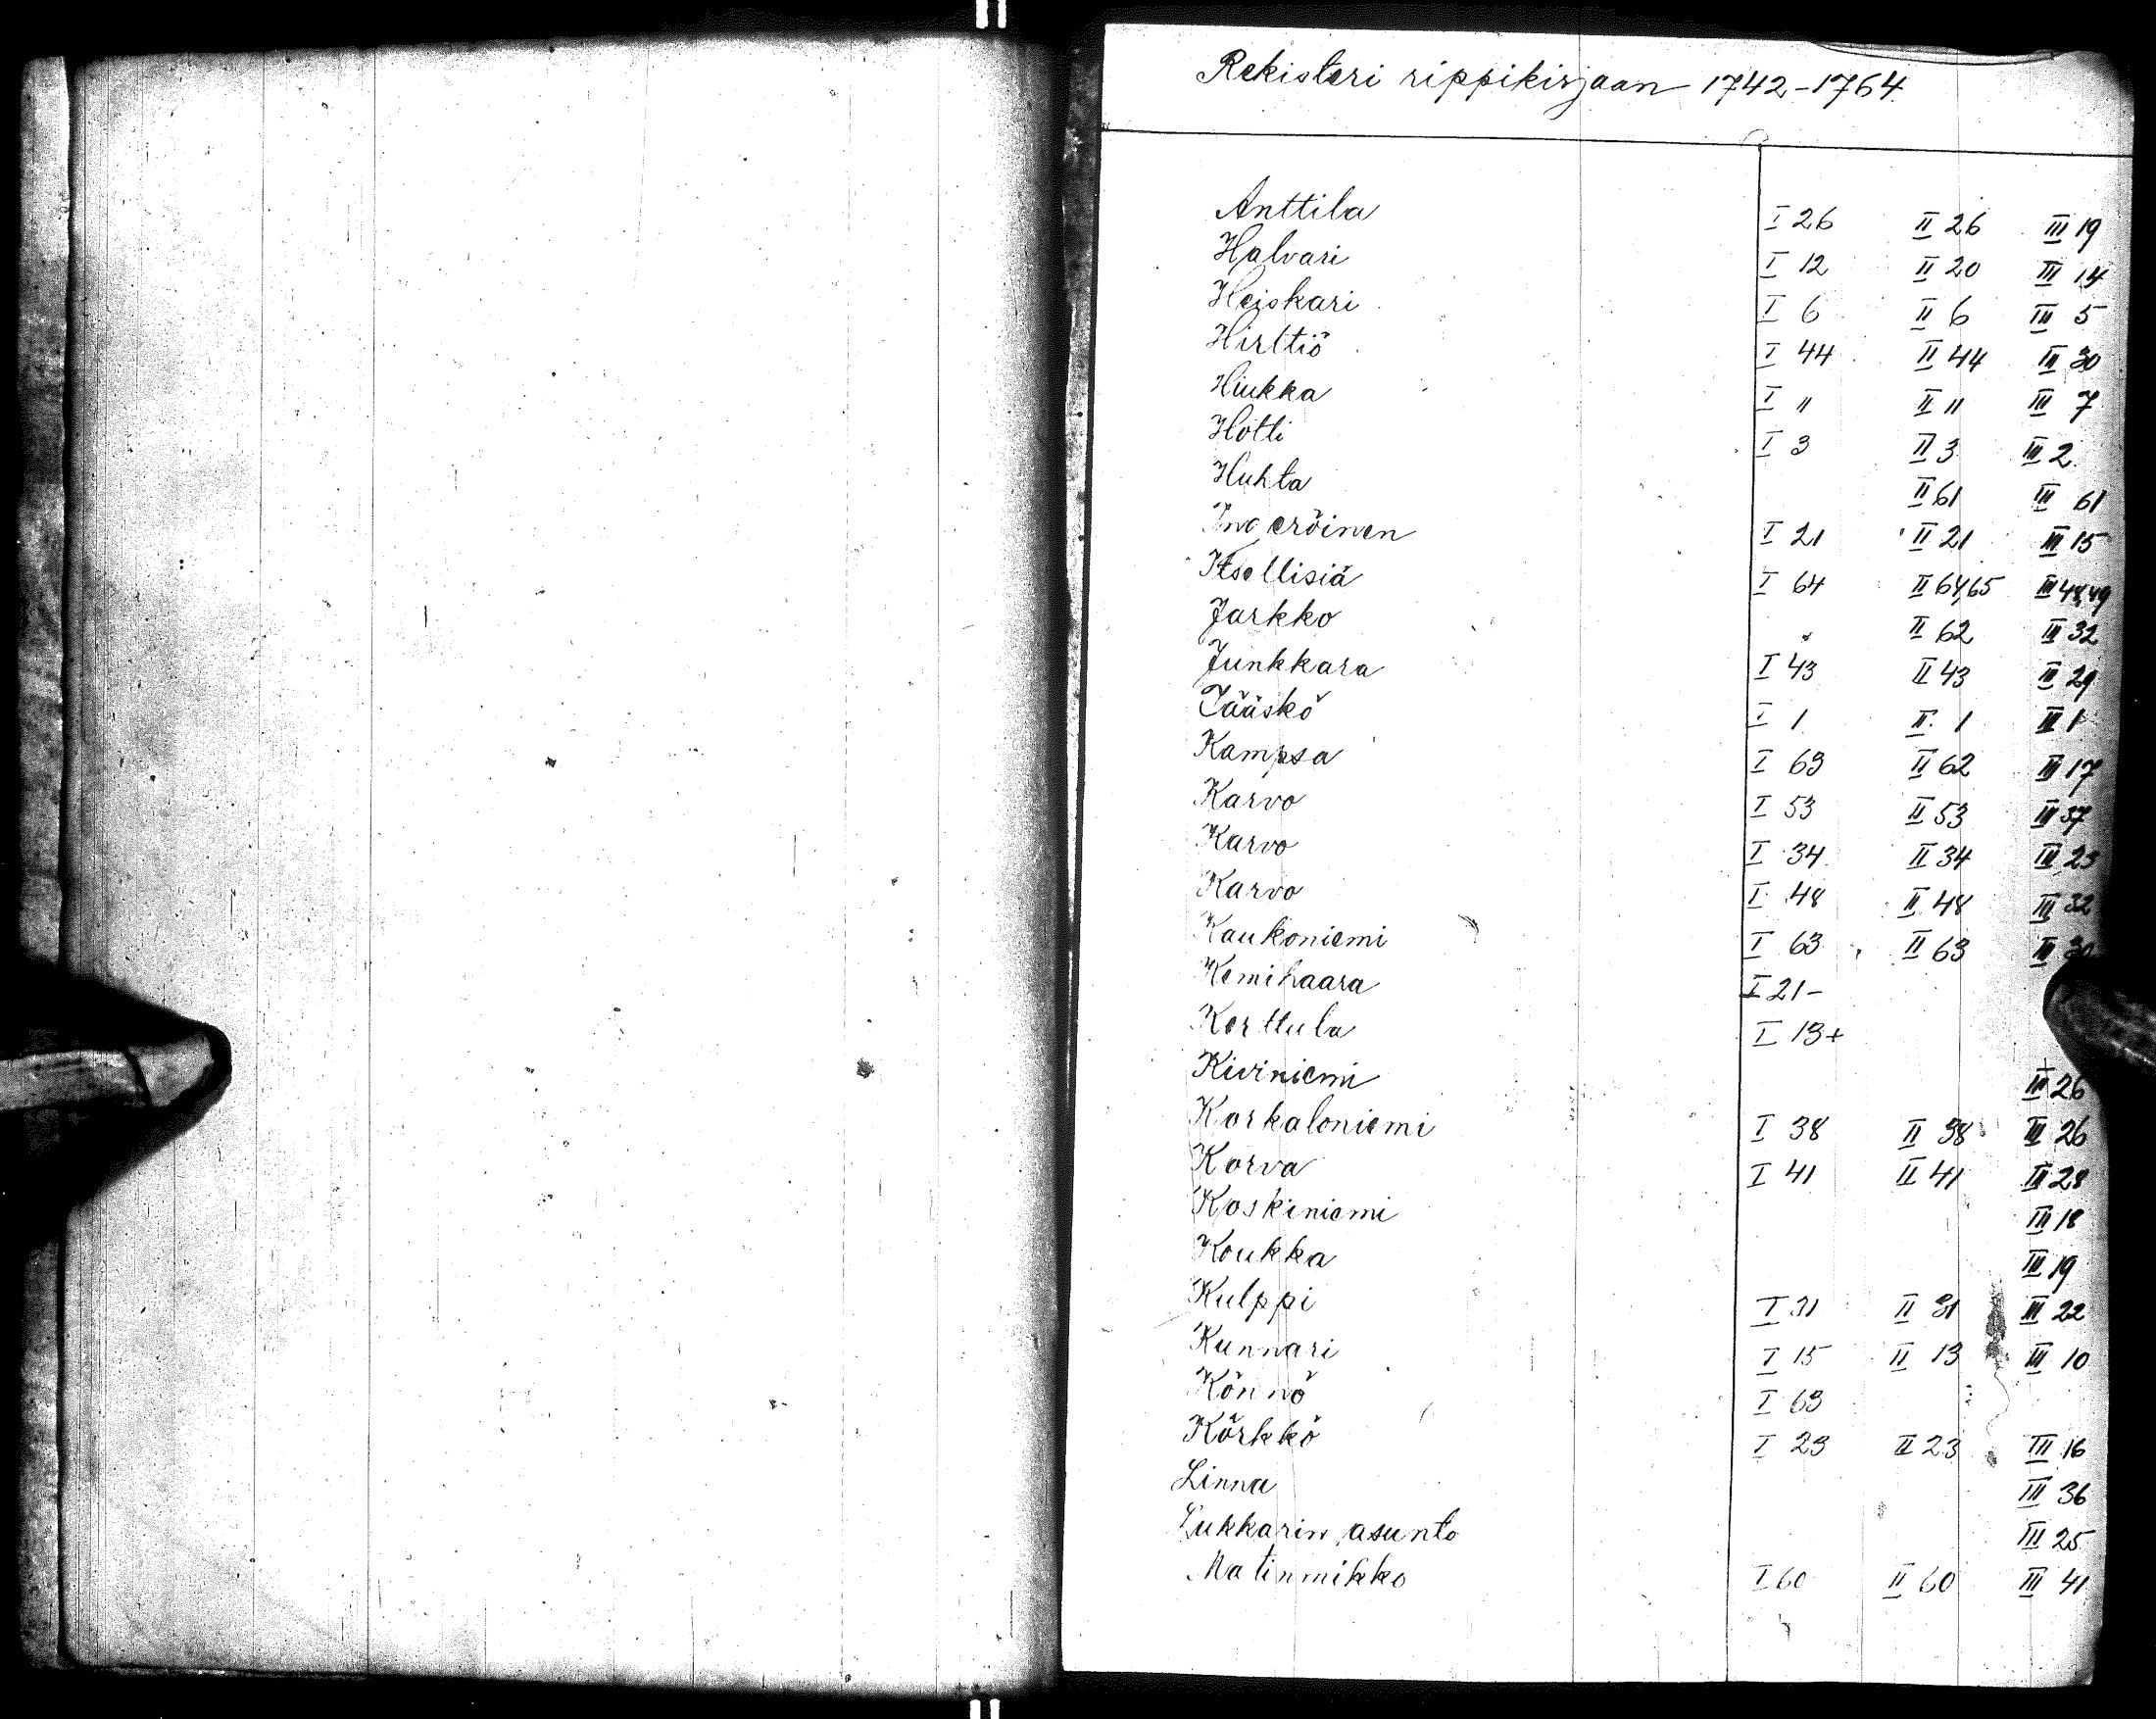 Rekisteri rippikirjaan 1742-1764
Anttila I 26 II 26 III 19
Halvari I 12 II 20 III 14
Heiskari I 6 II 6 III 5
Hirttiö I 44 II 44 III 30
Hiukka I 11 II 11 III 7
Hotti I 3 II 3 III 2
Huhta II 61 III 61
Ingeröinen I 21 II 21 III 15
Itsellisiä I 64 II 64,65 III 48,49
Jarkko II 62 III 32
Junkkara I 43 II 43 III 29
Jääskö I 1 II 1 III 1
Kampsa I 63 II 62 III 17
Karvo I 53 II 53 III 37
Karvo I 34 II 34 III 23
Karvo I 48 II 48 III 32
Kaukoniemi I 63 II 63 III
Kemihaara I 21-
Kerttula I 13+
Kiviniemi III 26
Korkaloniemi I 38 II 38 III 26
Korva I 41 II 41 III 28
Koskiniemi III 18
Koukka III 19
Kulppi I 31 II 31 III 22
Kunnari I 15 II 13 III 10
Könnö I 63
Körkkö I 23 II 23 III 16
Linna III 36
Lukkarin asunto III 25
Matinmikko I 60 II 60 III 41